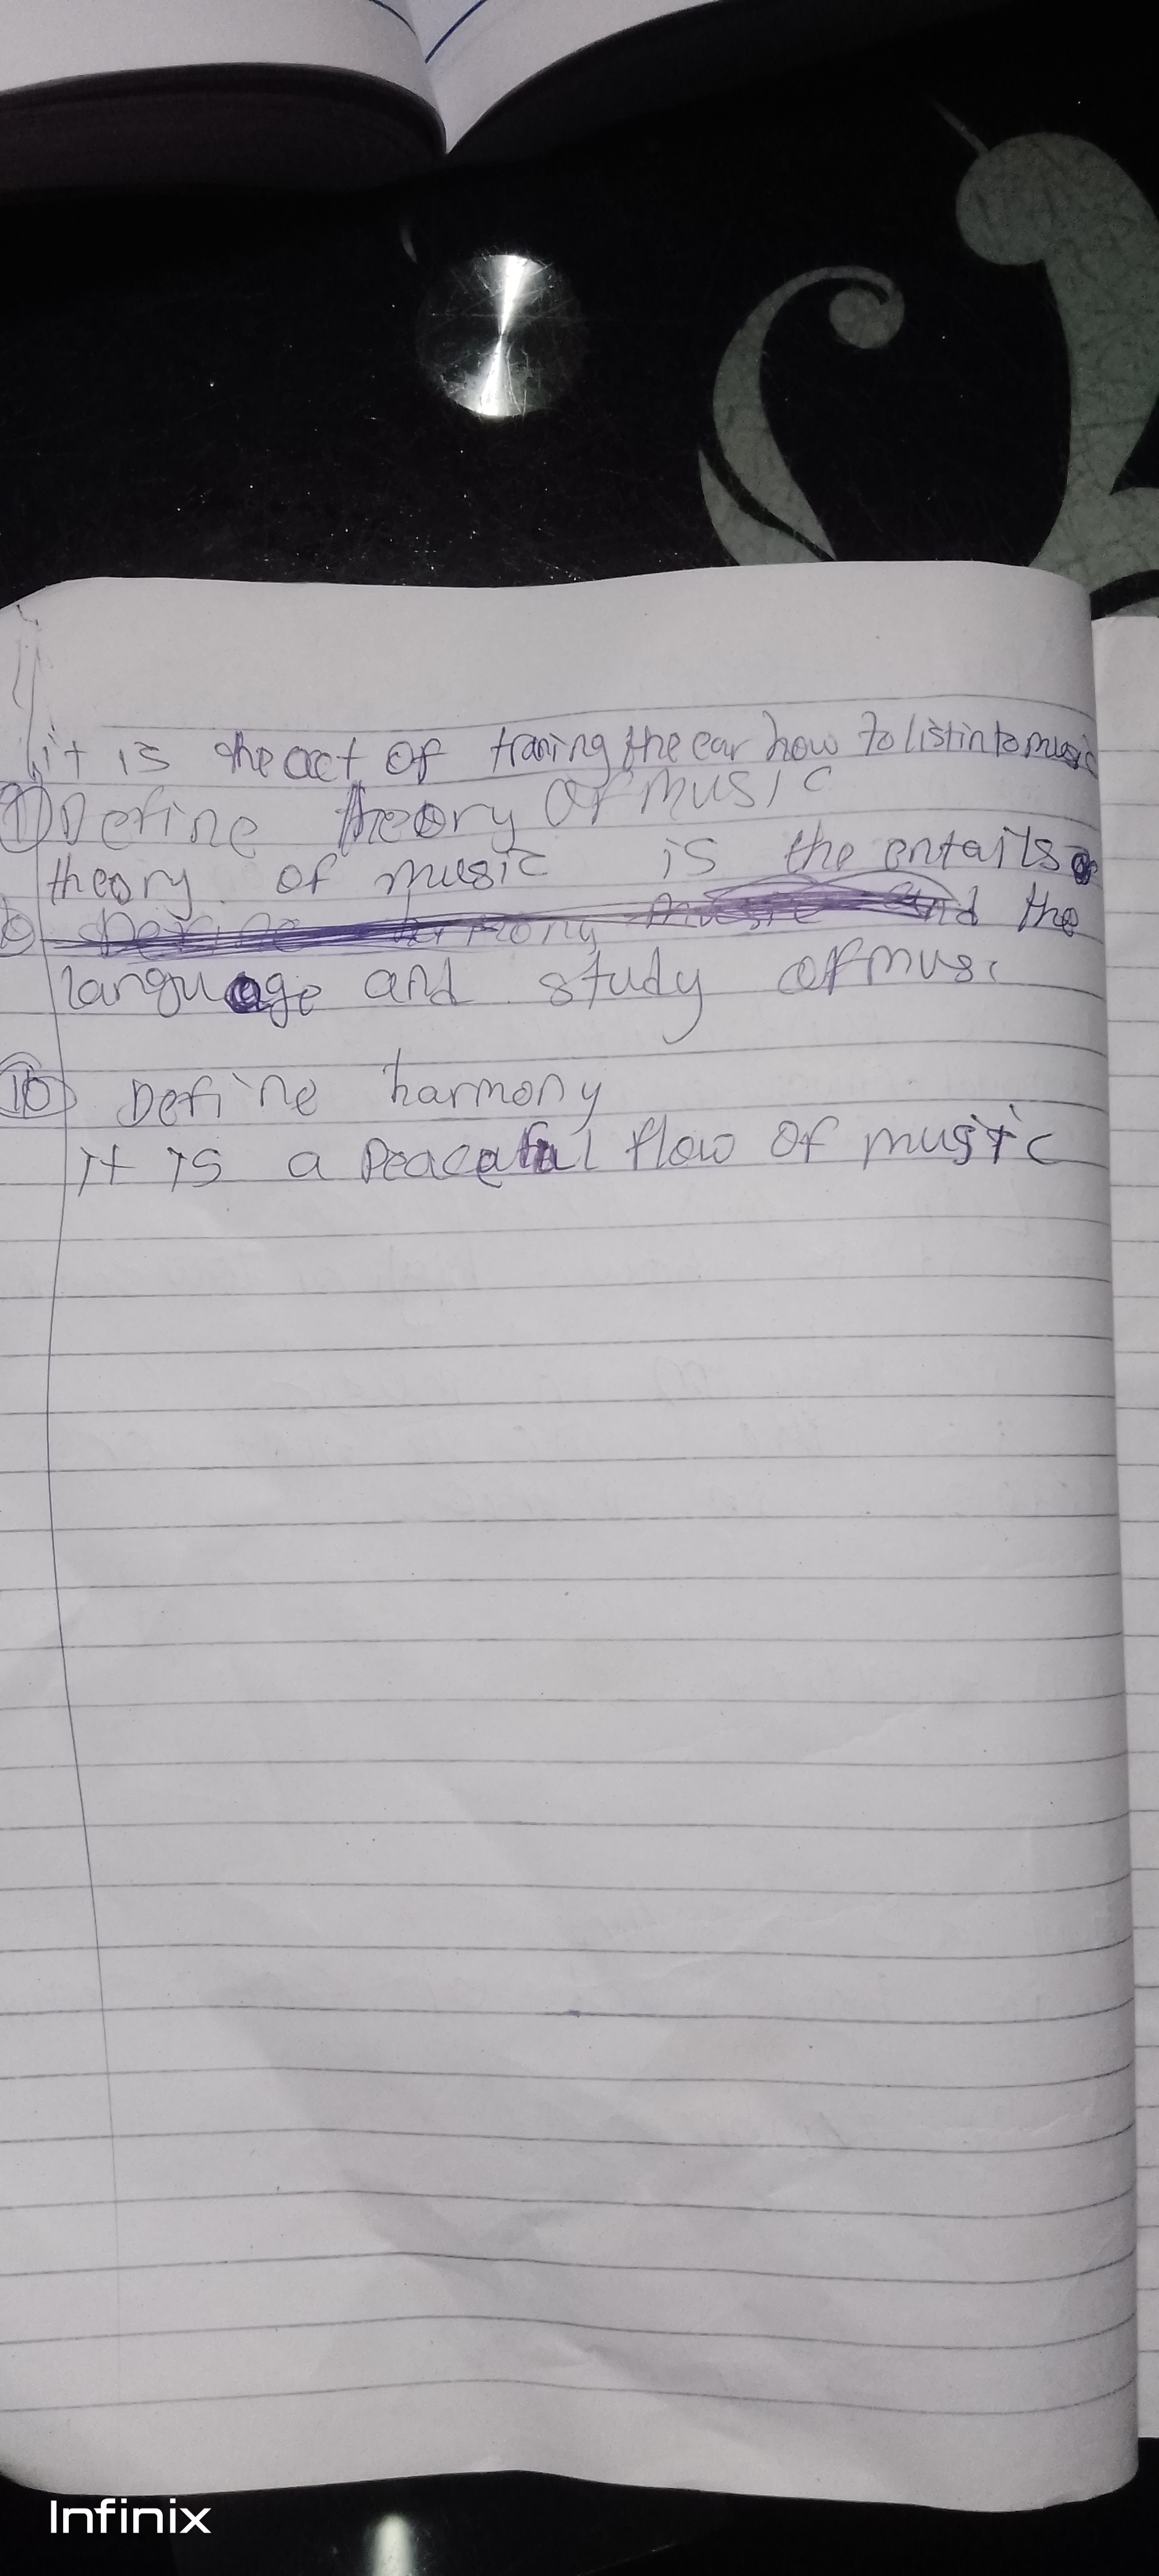 it is the act of traning the ear how to listin to music
1) Define theory of music
theory of music is the entails
and the
language and study of musi
10 Define harmony
it is a Peaceful flow of music
Infinix